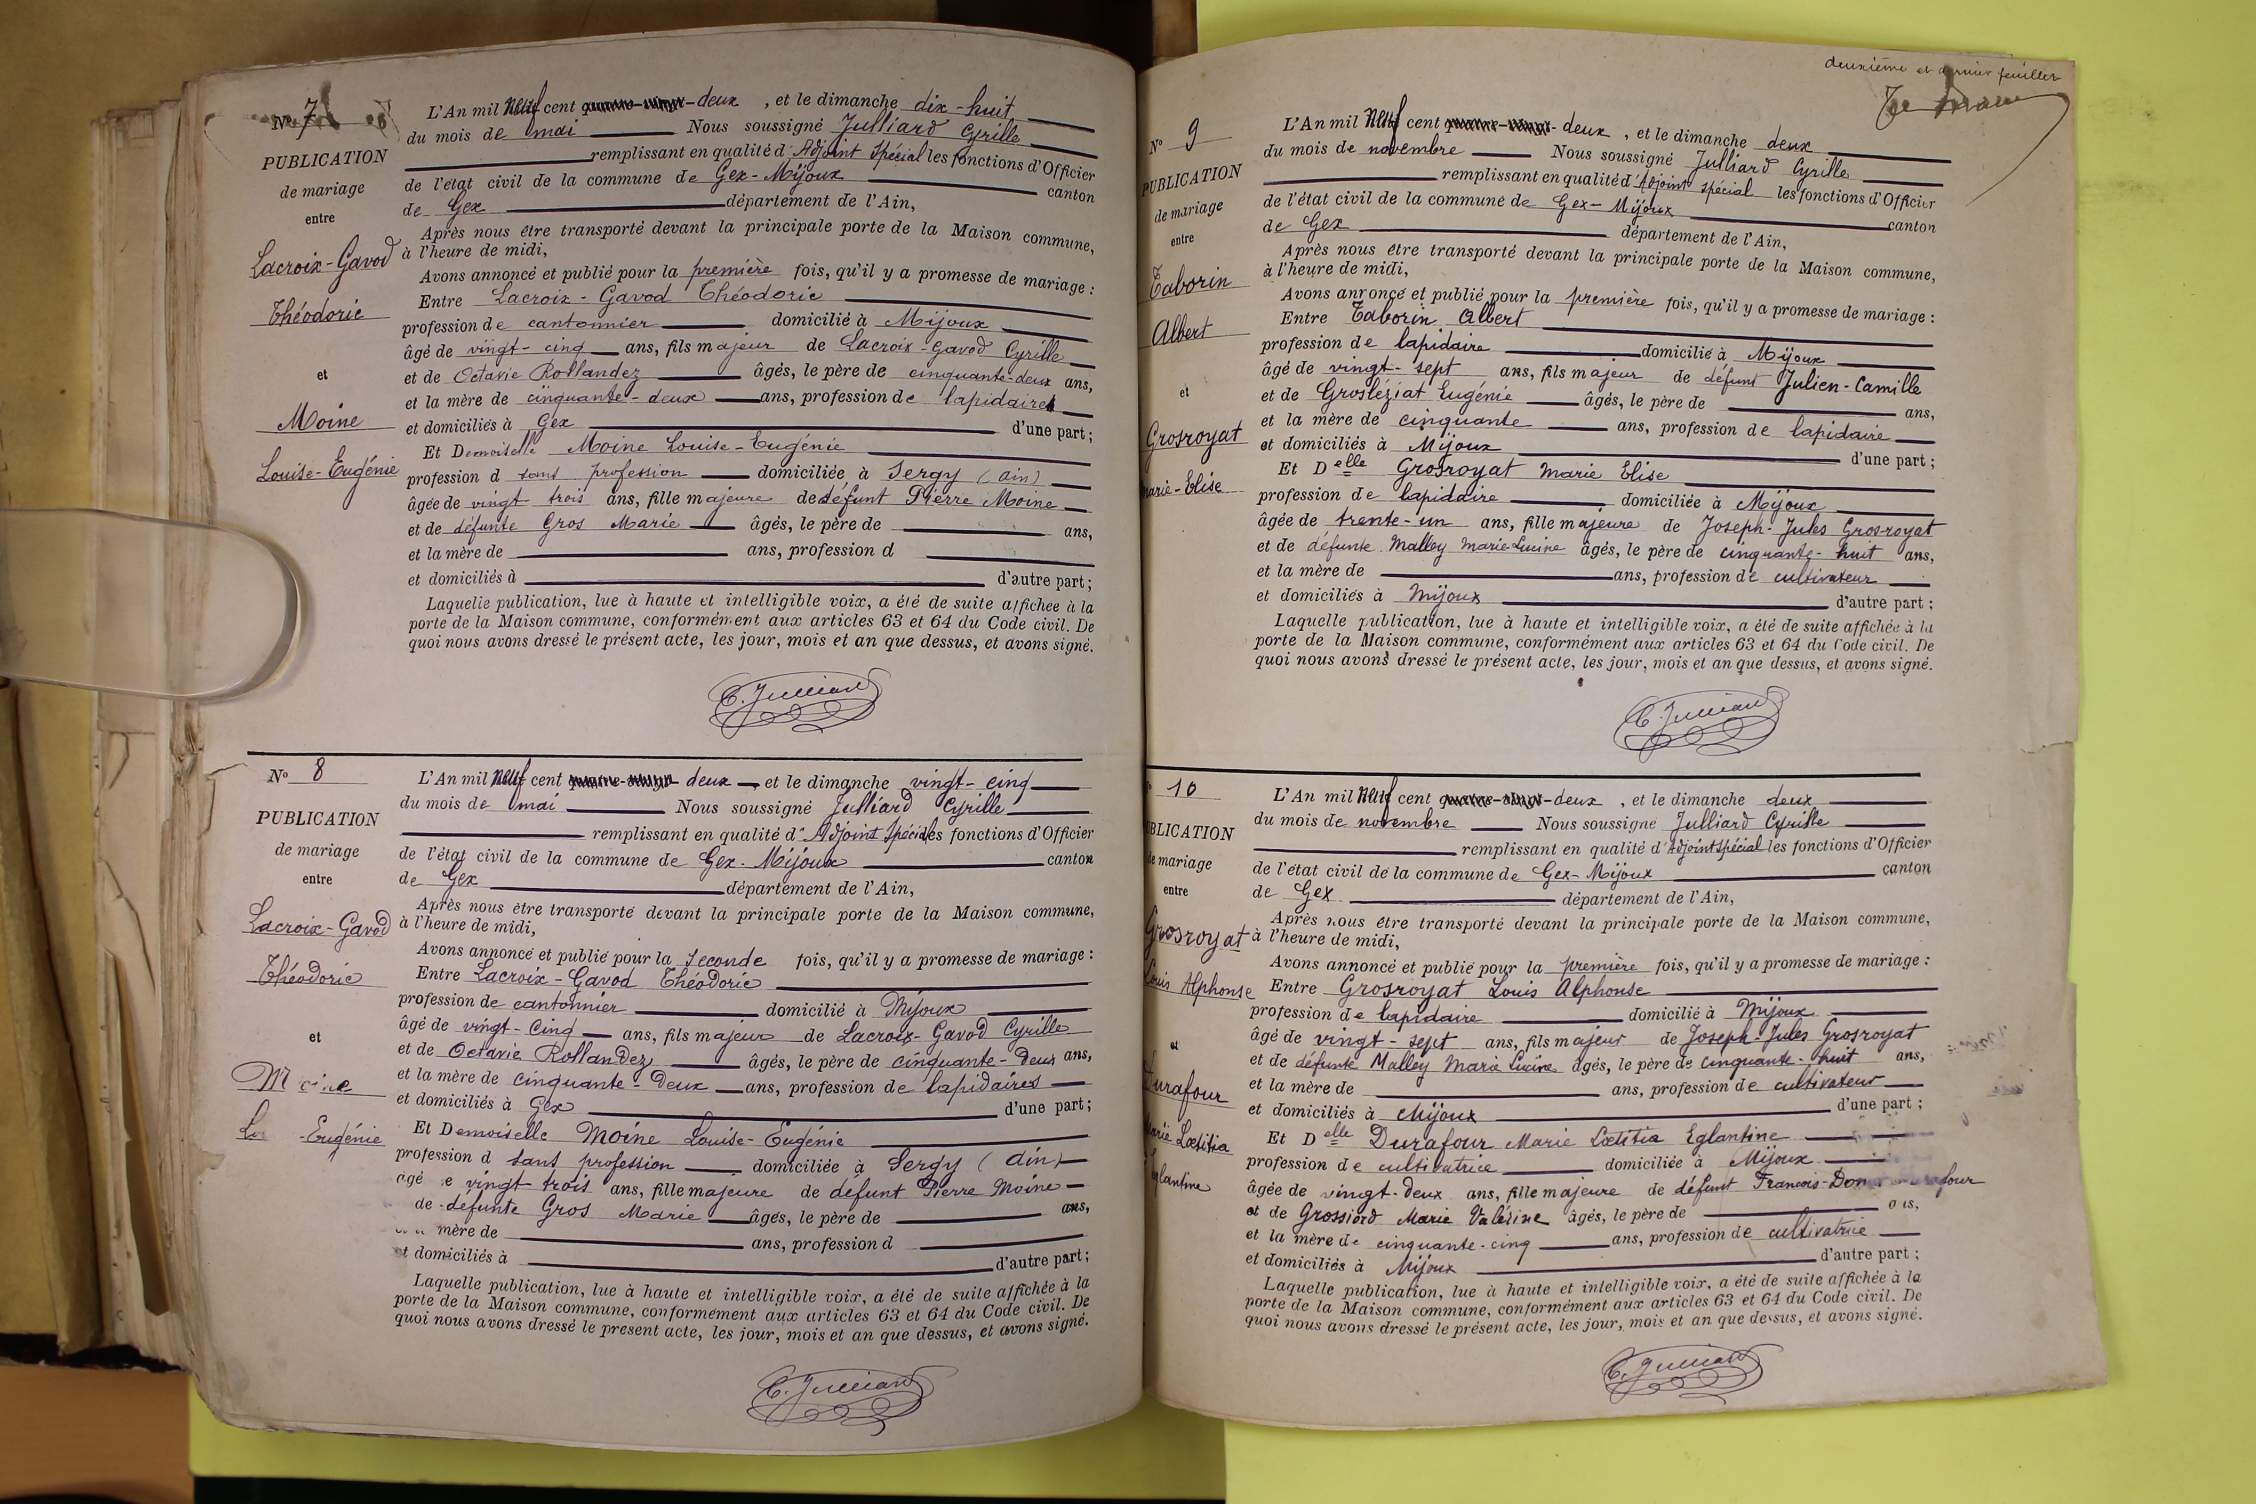 N° 7
PUBLICATION
de mariage
entre
Lacroix-Gavod
Théodorie
et
Moine
Louise-Eugénie
L'An mil Neuf cent quatre-vingt-deux, et le dimanche dix-huit
du mois de mai Nous soussigné Julliard Cyrille
remplissant en qualité d'Adjoint Spécial les fonctions d'Officier
de l'état civil de la commune de Gex-Mijoux canton
de Gex département de l'Ain,
Après nous être transporté devant la principale porte de la Maison commune,
à l'heure de midi,
Avons annoncé et publié pour la première fois, qu'il y a promesse de mariage :
Entre Lacroix-Gavod Théodorie
profession de cantonnier domicilié à Mijoux
âgé de vingt-cinq ans, fils majeur de Lacroix-Gavod Cyrille
et de Octavie Rollandez âgés, le père de cinquante-deux ans,
et la mère de cinquante-deux ans, profession de lapidaires
et domiciliés à Gex d'une part ;
Et Demoiselle Moine Louise-Eugénie
profession d sans profession domiciliée à Sergy (Ain)
âgée de vingt trois ans, fille majeure de défunt Pierre Moine
et de défunte Gros Marie âgés, le père de ans,
et la mère de ans, profession d
et domiciliés à d'autre part ;
Laquelle publication, lue à haute et intelligible voix, a été de suite affichée à la
porte de la Maison commune, conformément aux articles 63 et 64 du Code civil. De
quoi nous avons dressé le présent acte, les jour, mois et an que dessus, et avons signé.
C. Julliard
N° 8
PUBLICATION
de mariage
entre
Lacroix-Gavod
Théodorie
et
Moine
-Eugénie
L'An mil Neuf cent quatre-vingt-deux et le dimanche vingt-cinq
du mois de mai Nous soussigné Julliard Cyrille
remplissant en qualité d'Adjoint Spécial les fonctions d'Officier
de l'état civil de la commune de Gex-Mijoux canton
de Gex département de l'Ain,
Après nous être transporté devant la principale porte de la Maison commune,
à l'heure de midi,
Avons annoncé et publié pour la seconde fois, qu'il y a promesse de mariage :
Entre Lacroix-Gavod Théodorie
profession de cantonnier domicilié à Mijoux
âgé de vingt-cinq ans, fils majeur de Lacroix-Gavod Cyrille
et de Octavie Rollandez âgés, le père de cinquante-deux ans,
et la mère de cinquante-deux ans, profession de lapidaires
et domiciliés à Gex d'une part ;
Et Demoiselle Moine Louise-Eugénie
profession d sans profession domiciliée à Sergy (Ain)
âgé e vingt trois ans, fille majeure de défunt Pierre Moine
de défunte Gros Marie âgés, le père de ans,
mère de ans, profession d
et domiciliés à d'autre part ;
Laquelle publication, lue à haute et intelligible voix, a été de suite affichée à la
porte de la Maison commune, conformément aux articles 63 et 64 du Code civil. De
quoi nous avons dressé le présent acte, les jour, mois et an que dessus, et avons signé.
C. Julliard
deuxième et dernier feuillet
Le Maire
N° 9
PUBLICATION
de mariage
entre
Taborin
Albert
et
Grosroyat
Marie-Elise
L'An mil Neuf cent quatre-vingt-deux, et le dimanche deux
du mois de novembre Nous soussigné Julliard Cyrille
remplissant en qualité d'Adjoint spécial les fonctions d'Officier
de l'état civil de la commune de Gex-Mijoux canton
de Gex département de l'Ain,
Après nous être transporté devant la principale porte de la Maison commune,
à l'heure de midi,
Avons annoncé et publié pour la première fois, qu'il y a promesse de mariage :
Entre Taborin Albert
profession de lapidaire domicilié à Mijoux
âgé de vingt-sept ans, fils majeur de défunt Julien-Camille
et de Grosléziat Eugénie âgés, le père de ans,
et la mère de cinquante ans, profession de lapidaire
et domiciliés à Mijoux d'une part ;
Et Delle Grosroyat Marie Elise
profession de lapidaire domiciliée à Mijoux
âgée de trente-un ans, fille majeure de Joseph-Jules Grosroyat
et de défunte Malley Marie-Lucine âgés, le père de cinquante-huit ans,
et la mère de ans, profession de cultivateur
et domiciliés à Mijoux d'autre part ;
Laquelle publication, lue à haute et intelligible voix, a été de suite affichée à la
porte de la Maison commune, conformément aux articles 63 et 64 du Code civil. De
quoi nous avons dressé le présent acte, les jour, mois et an que dessus, et avons signé.
C. Julliard
10
PUBLICATION
de mariage
entre
Grosroyat
Louis Alphonse
et
Durafour
Marie Lœtitia
Eglantine
L'An mil Neuf cent quatre-vingt-deux, et le dimanche deux
du mois de novembre Nous soussigné Julliard Cyrille
remplissant en qualité d'Adjoint Spécial les fonctions d'Officier
de l'état civil de la commune de Gex-Mijoux canton
de Gex département de l'Ain,
Après nous être transporté devant la principale porte de la Maison commune,
à l'heure de midi,
Avons annoncé et publié pour la première fois, qu'il y a promesse de mariage :
Entre Grosroyat Louis Alphonse
profession de lapidaire domicilié à Mijoux
âgé de vingt-sept ans, fils majeur de Joseph-Jules Grosroyat
et de défunte Malley Marie Lucine âgés, le père de cinquante-huit ans,
et la mère de ans, profession de cultivateur
et domiciliés à Mijoux d'une part ;
Et Delle Durafour Marie Lœtitia Eglantine
profession de cultivatrice domiciliée à Mijoux
âgée de vingt-deux ans, fille majeure de défunt François-Don
et de Grossiord Marie Valérine âgés, le père de ans,
et la mère de cinquante-cinq ans, profession de cultivatrice
et domiciliés à Mijoux d'autre part ;
Laquelle publication, lue à haute et intelligible voix, a été de suite affichée à la
porte de la Maison commune, conformément aux articles 63 et 64 du Code civil. De
quoi nous avons dressé le présent acte, les jour, mois et an que dessus, et avons signé.
C. Julliard